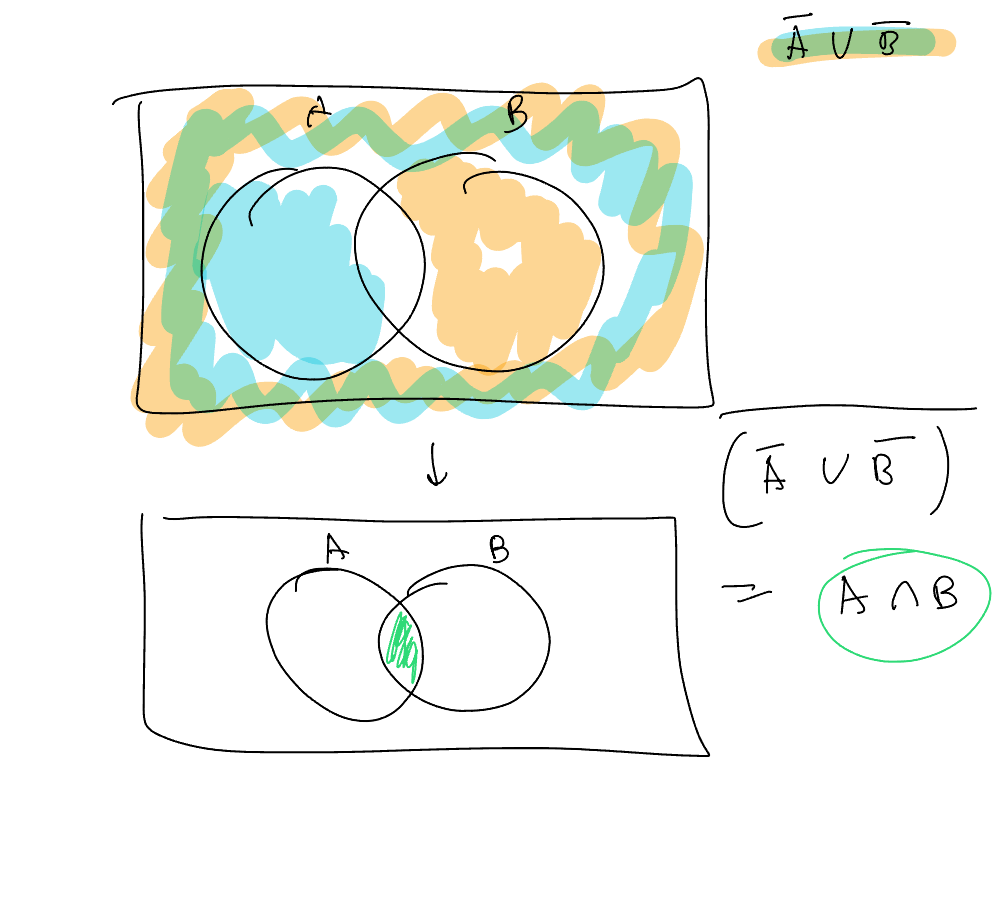 A̅ ∪ B̅
A B
↓
\overline{(A̅ ∪ B̅)}
A B
= A ∩ B